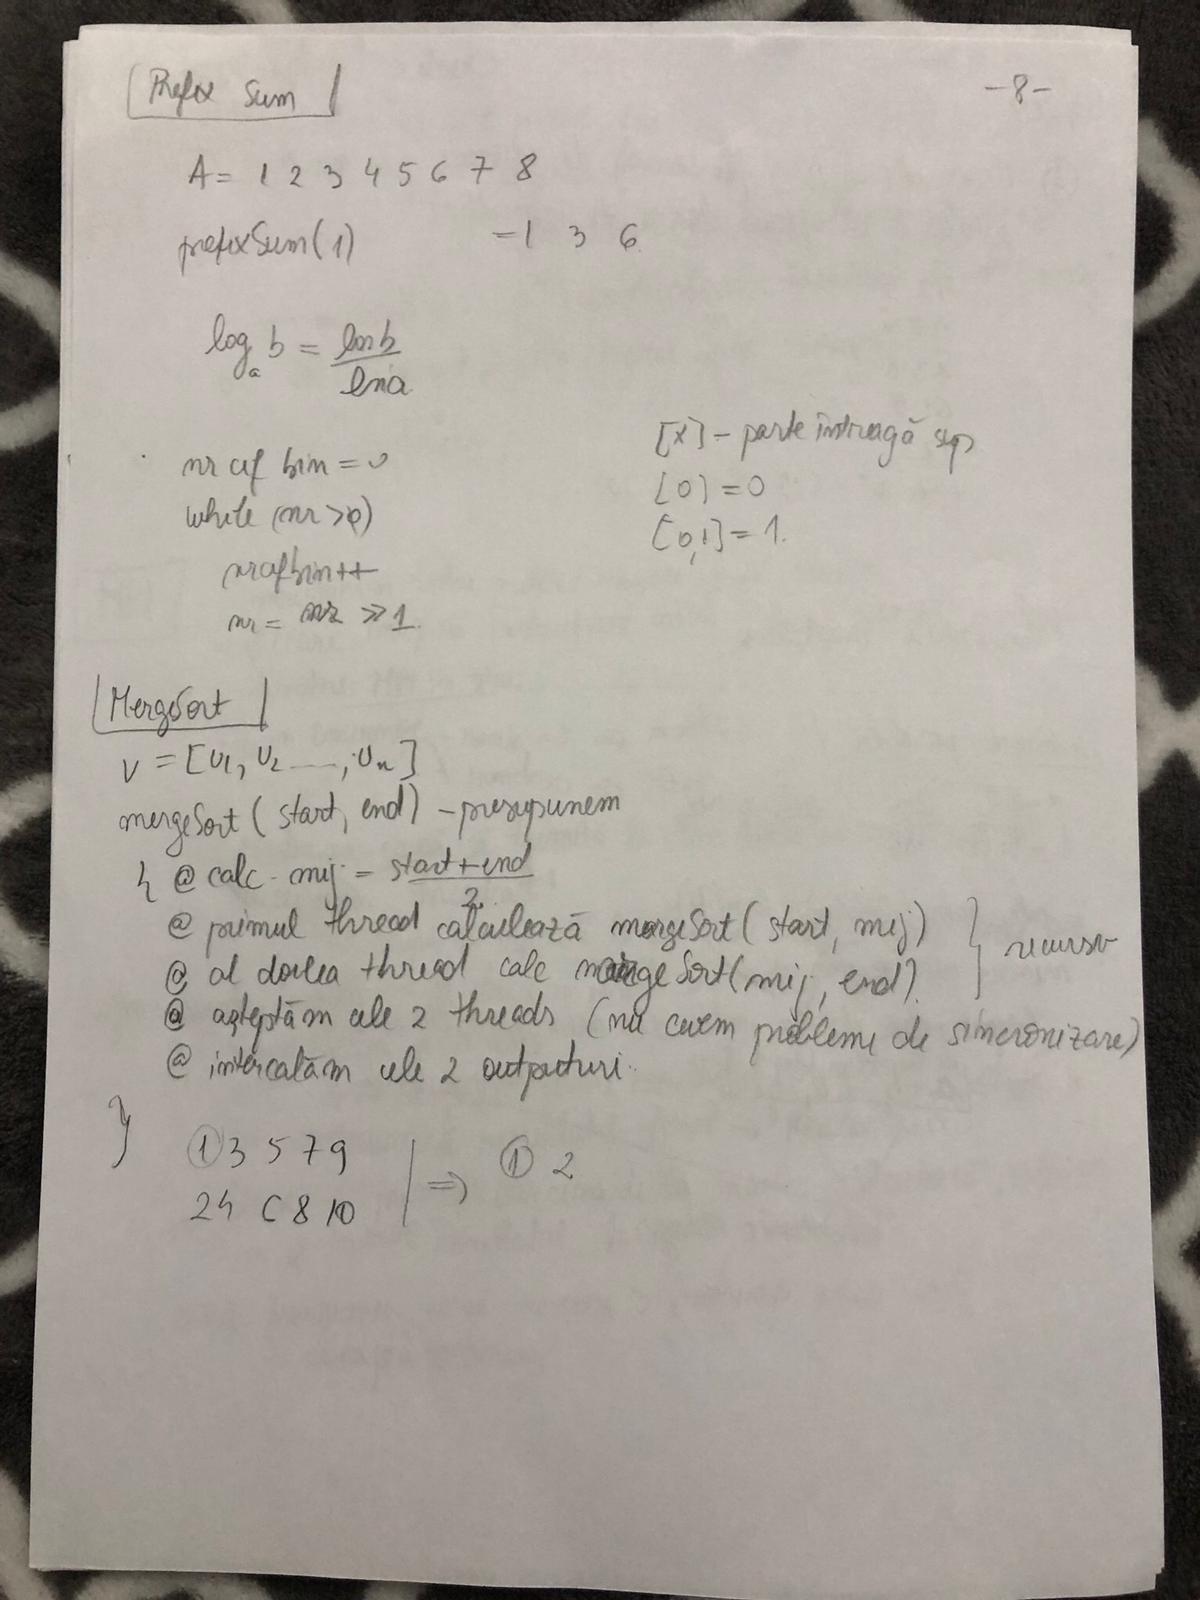 Prefix Sum
-8-
A= 1 2 3 4 5 6 7 8
prefixSum(1) =1 3 6
log_a b = ln b / ln a
[x] - parte întreagă sup
nr cif bin = 0
[0] = 0
while (nr > 0)
[0,1] = 1.
nrcifbin++
nr = nr >> 1.
MergeSort
V = [v1, v2 ...., vn]
mergeSort( start, end) - presupunem
{ @ calc mij = start+end / 2
@ primul thread calculează mergeSort( start, mij) } recursiv
@ al doilea thread calc mergeSort(mij, end).
@ așteptăm cele 2 threads (nu avem probleme de sincronizare)
@ intercalăm cele 2 outputuri.
}
1 3 5 7 9 | => 1 2
2 4 6 8 10